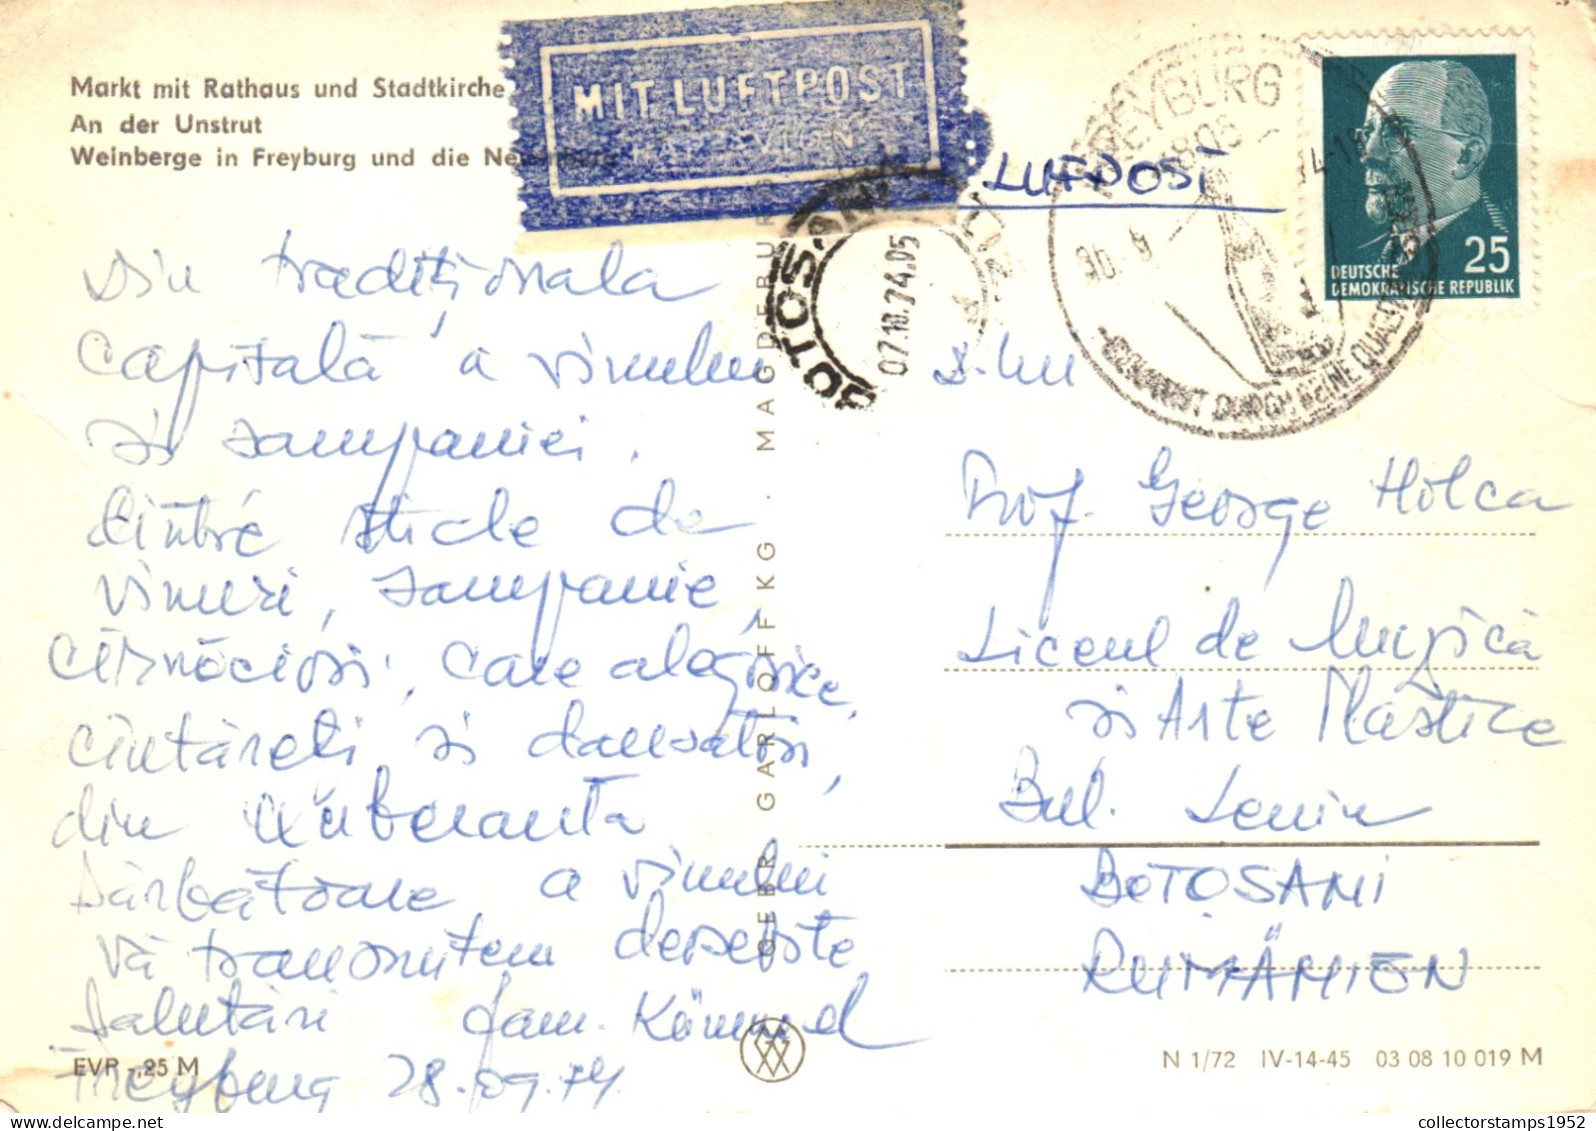 Markt mit Rathaus und Stadtkirche
An der Unstrut
Weinberge in Freyburg und die
MIT LUFTPOST
PAR AVION
LUFTPOST
FREYBURG
4805
30.-9
BOTOSANI
07.10.74.05
DEUTSCHE
DEMOKRATISCHE REPUBLIK
25
DURCH SEINE
Din tradiționala
capitală a vinului
și sampaniei.
Dintre sticle de
vinuri, sampanie,
cîrnăciori, care alegorice,
cîntăreți și dansatori,
din exuberanta
sărbătoare a vinului
vă transmitem deosebite
salutări fam. Kümmel
Freyburg 28.09.74
D-lui
Prof. George Holca
Liceul de Muzică
și Arte Plastice
Bul. Lenin
BOTOSANI
RUMÄNIEN
GEBR. GARLOFF KG. MAGDEBURG
EVP -,25 M
N 1/72 IV-14-45 03 08 10 019 M
collectorstamps1952